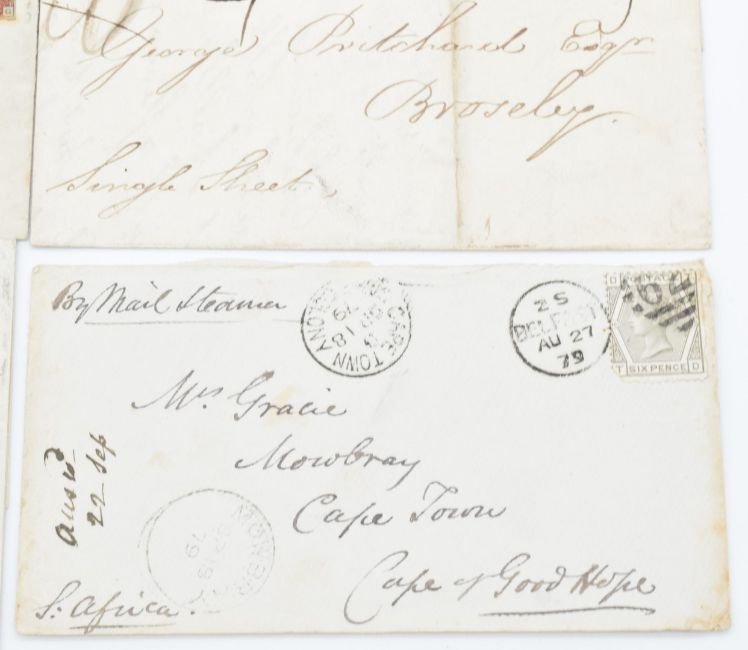 George Pritchard Esqr
Broseley.
Single Sheet
By Mail Steamer
CAPE TOWN
COLONY
SP 18
79
2S
BELFAST
AU 27
79
62
T SIX PENCE D
Mrs Gracie
Mowbray
Cape Town
Cape of Good Hope
ansd
22 Sep
MOWBRAY
SP 19
79
S. Africa.